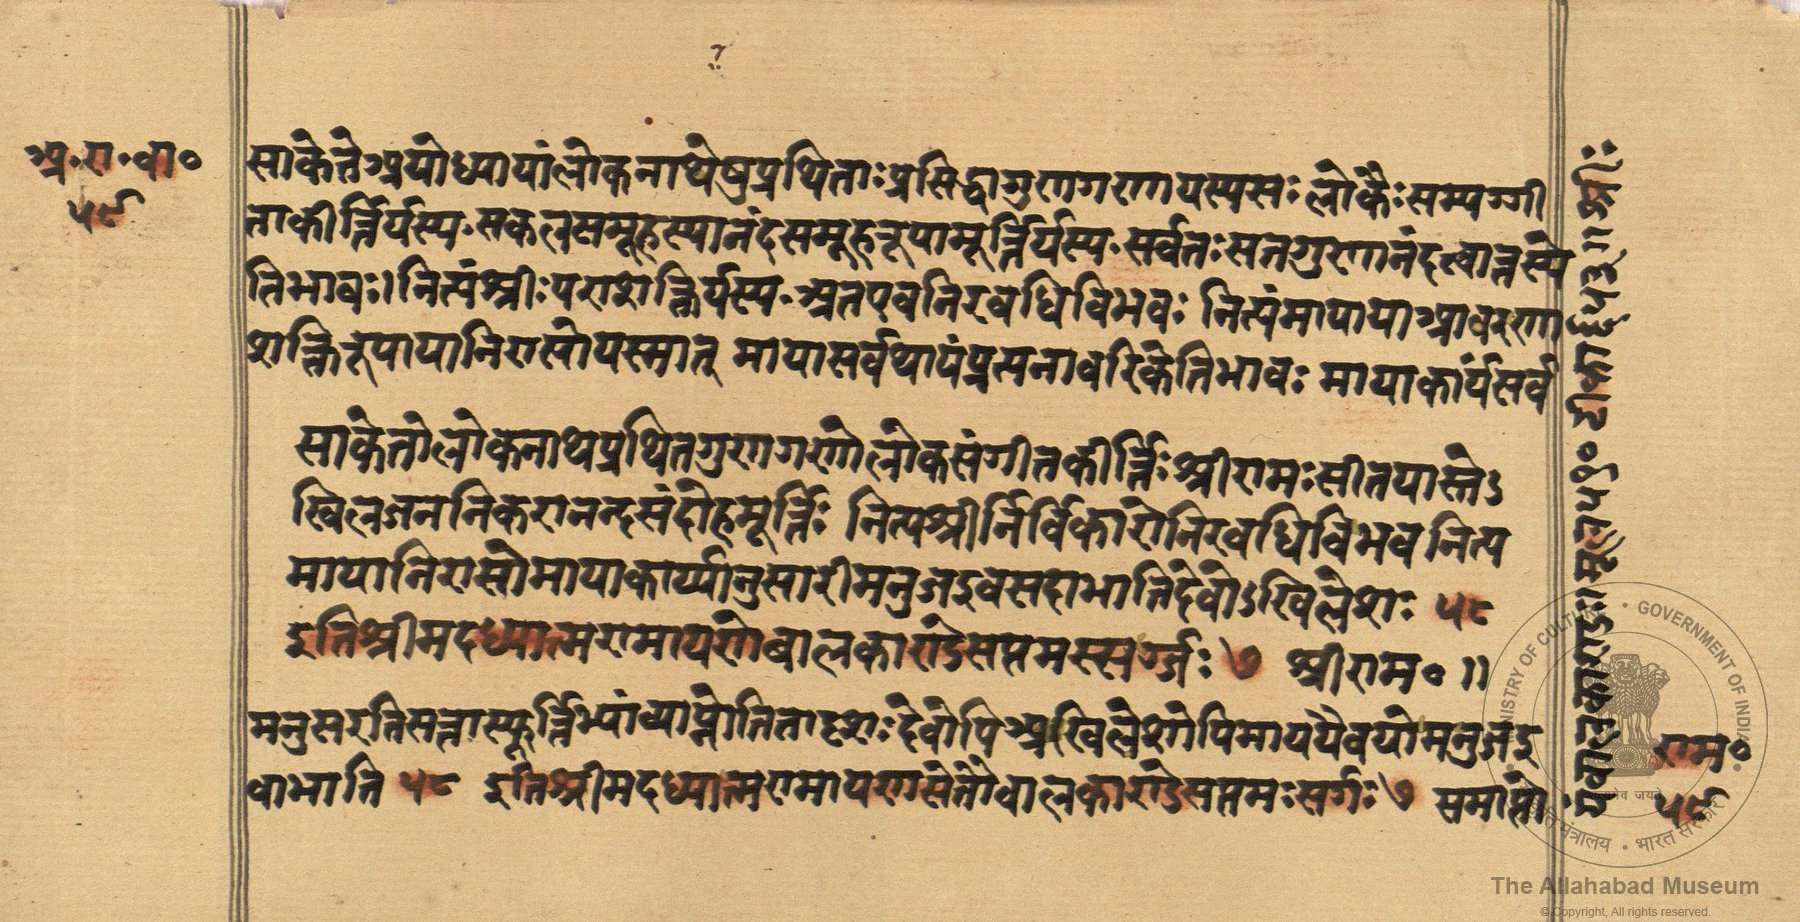 अ.रा.बा०
५९
साकेते अयोध्यायां लोकनाथेषु प्रथिताः प्रसिद्धा गुणगणा यस्य सः लोकैः सम्यग्गी
ता कीर्त्तिर्यस्य. सकलसमूहस्यानंदसमूहरूपामूर्त्तिर्यस्य. सर्वतः सत
तिभावः। नित्यं श्रीः पराशक्तिर्यस्य. अतएव निरवधिविभवः नित्यं मायाया आवरण
शक्तिरूपाया निरासो यस्मात् माया सर्वथा भावः मायाकार्यं सर्व
साकेतो लोकनाथप्रथितगुणगणो लोकसंगीतकीर्त्तिः श्रीरामः सीतयास्तेऽ
खिलजननिकरानन्दसंदोहमूर्त्तिः नित्यश्रीर्निर्विकारो निरवधिविभव नित्य
मायानिरासो मायाकार्य्यानुसारी मनुज इव सदाभाति देवोऽखिलेशः ५८
इति श्रीमदध्यात्मरामायणे बालकाण्डे सप्तमस्सर्ग्गः ७ श्रीराम० ॥
मनुसरति सत्तास्फूर्त्तिभ्यां व्याप्नोति तादृशः देवोपि अखिलेशोपि माययैव यो मनुज इ
वाभाति ५८ इति श्रीमदध्यात्मरामायणसेतौ बालकाण्डे सप्तमः सर्गः ७ समाप्तो
राम०
५९
MINISTRY OF CULTURE • GOVERNMENT OF INDIA
संस्कृति मंत्रालय • भारत सरकार
The Allahabad Museum
© Copyright, All rights reserved.